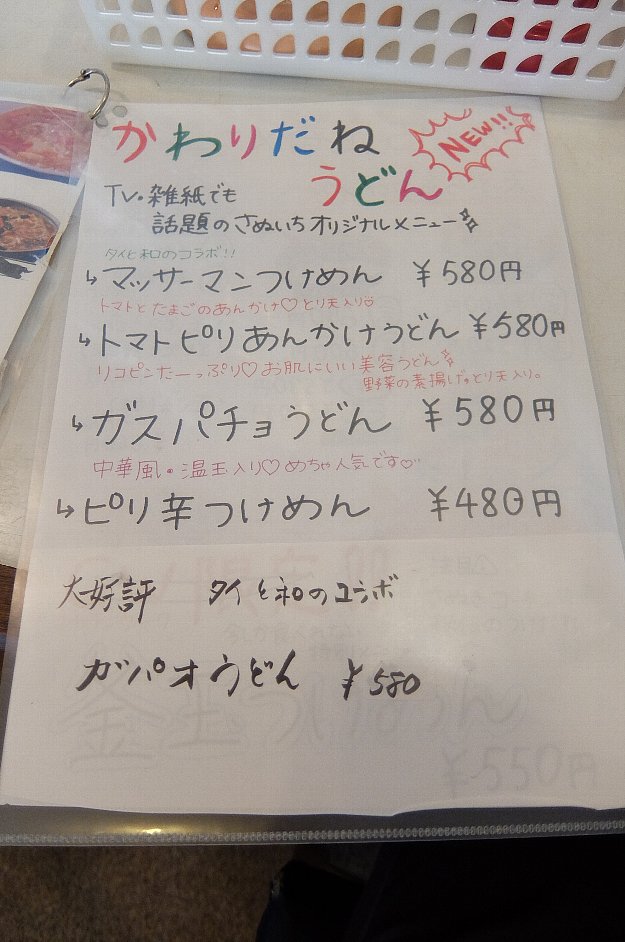 かわりだね
うどん
NEW!!
TV・雑紙でも
話題のさぬいちオリジナルメニュー
タイと和のコラボ!!
↳マッサーマンつけめん ¥580円
トマトとたまごのあんかけ♡とり天入り
↳トマトピリあんかけうどん ¥580円
リコピンたーっぷり♡お肌にいい美容うどん
野菜の素揚げ、とり天入り。
↳ガスパチョうどん ¥580円
中華風・温玉入り♡めちゃ人気です♡
↳ピリ辛つけめん ¥480円
大好評 タイと和のコラボ
ガパオうどん ¥580
釜玉うどん
¥550円